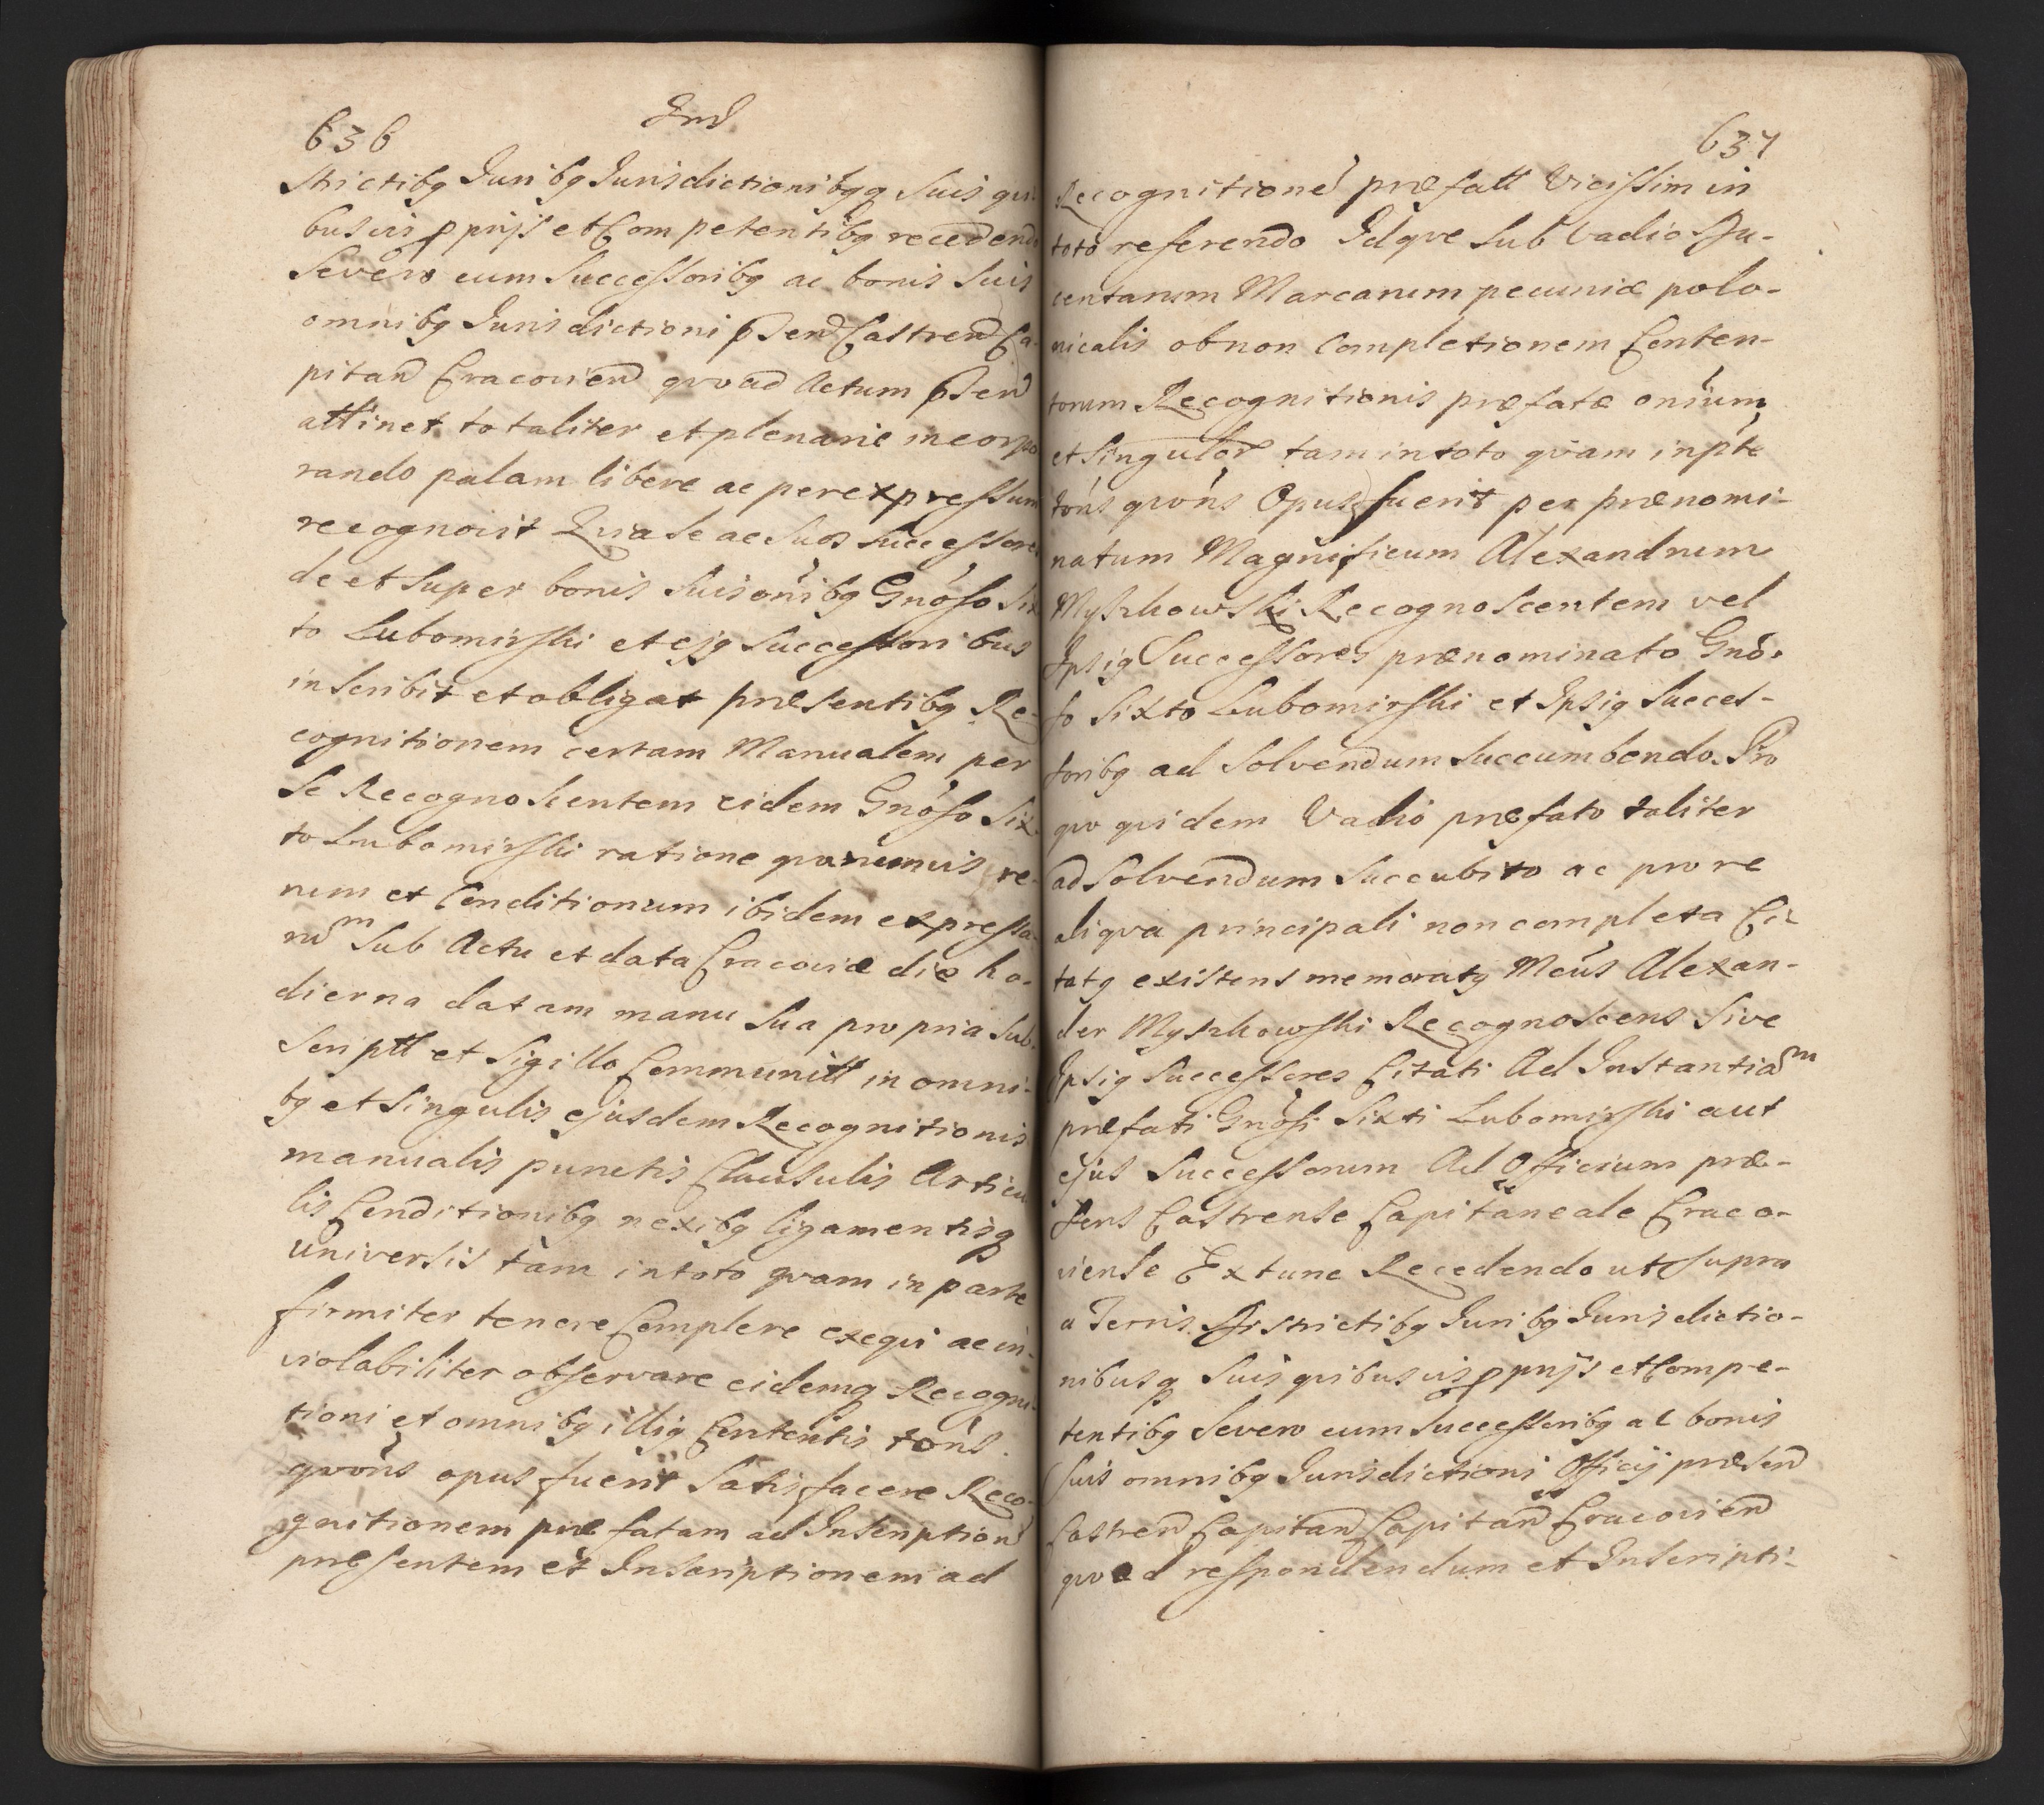 636
Ind
strictibq Juribq Jurisdictionibqq suis qui-
busvis pprijs et Competentibq recedendo
Severo cum Successoribq ac bonis suis
omnibq Jurisdictioni pnsend Castrend Ca-
pitand Cracoviend qvoad Actum pnsend
attinet totaliter et plenarie incorpo
rando palam libere ac per expressum
recognovit Qvia se ac suos successores
de et super bonis suis onibq Gnoso Six
to Lubomirski et ejq successoribus
inscribit et obligat præsentibq Re-
cognitionem certam Manualem per
se Recognoscentem eidem Gnoso Six-
to Lubomirski ratione qvarumvis re-
rum et Conditionum ibidem expressa-
rum sub Actu et data Cracoviæ die ho-
dierna datam manu sua propria sub-
scriptt et sigillo Communitt in omni-
bq et singulis ejusdem Recognitionis
manualis punctis Clausulis Articu
lis Conditionibq nexibq ligamentisq
universis tam in toto qvam in parte
firmiter tenere Complere exeqvi ac in-
violabiliter observare eidemq Recogni-
tioni et omnibq illiq Contentis tons
qvons opus fuerit satisfacere Reco-
gnitionem præfatam ad Inscription
præsentem et Inscriptionem ad
637
Recognitione præfatt vicissim in
toto referendo Idqve sub vadio Du-
centarum Marcarum pecuniæ polo-
nicalis ob non Completionem Conten-
torum Recognitionis præfatæ onium
et singulor tam in toto qvam in pte
tons qvons Opus fuerit per prænomi-
natum Magnificum Alexandrum
Myszkowski Recognoscentem vel
Ipsiq Successores prænominato Gno-
so Sixto Lubomirski et Ipsiq succes-
soribq ad solvendum succumbendo. Pro
qvo qvidem Vadio præfato taliter
ad solvendum succubito ac pro re
aliqva principali non completa Ci-
tatq existens memoratq Mcus Alexan-
der Myszkowski Recognoscens sive
Ipsiq successores Citati Ad Instantiam
præfati Gnosi Sixti Lubomirski aut
ejus Successorum Ad Officium præ-
sens Castrense Capitaneale Craco-
viense Extunc Recedendo ut supra
a Terris Districtibq Juribq Jurisdictio-
nibusq suis qvibusvis pprijs et Compe-
tentibq severo cum successoribq ac bonis
suis omnibq Jurisdictioni Officij præsend
Castrend Capitand Capitand Cracoviend
qvoad respondendum et Inscripti-